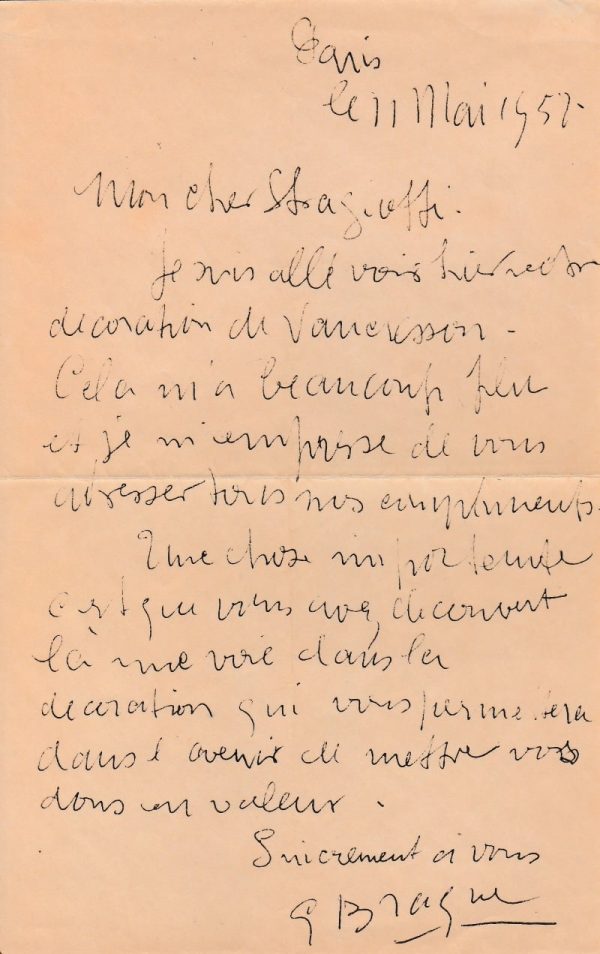 Paris
le 11 Mai 1957
Mon cher Stragiotti.
Je suis allé voir hier votre
decoration de Vaucresson -
Cela m'a beaucoup plu
et je m'empresse de vous
adresser tous mes compliments.
Une chose importante
c'est que vous avez decouvert
là une voie dans la
decoration qui vous permettera
dans l avenir de mettre vos
dons en valeur.
Sincrement à vous
G Braque